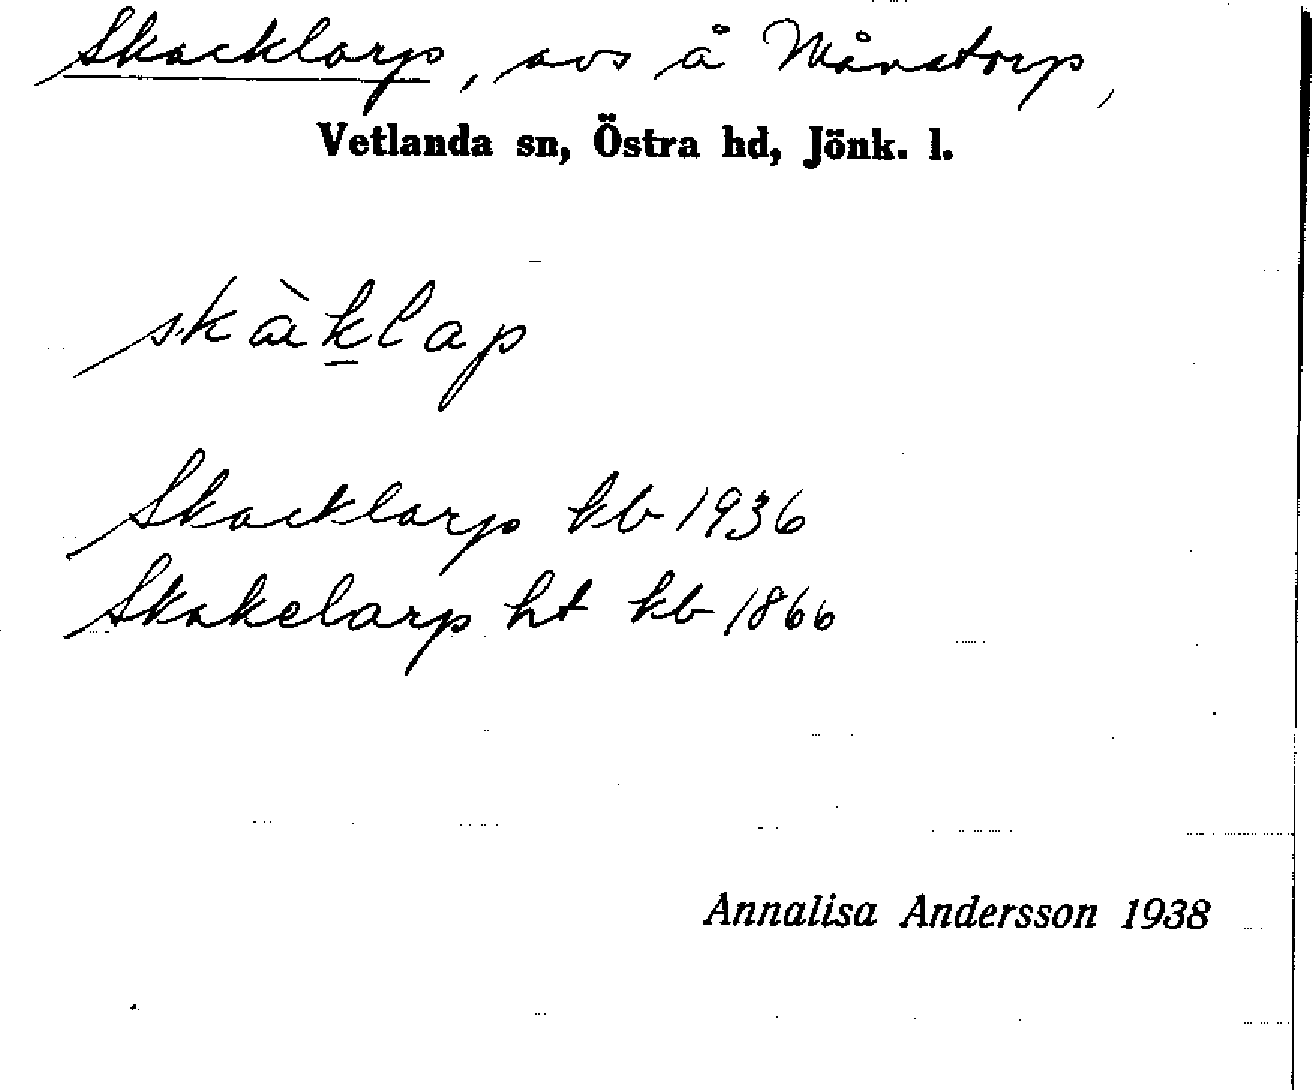 Skacklarp, avs å Månstorp,
Vetlanda sn, Östra hd, Jönk. l.
skàk̲lap
Skacklarp kb 1936
Skakelarp ht kb 1866
Annalisa Andersson 1938